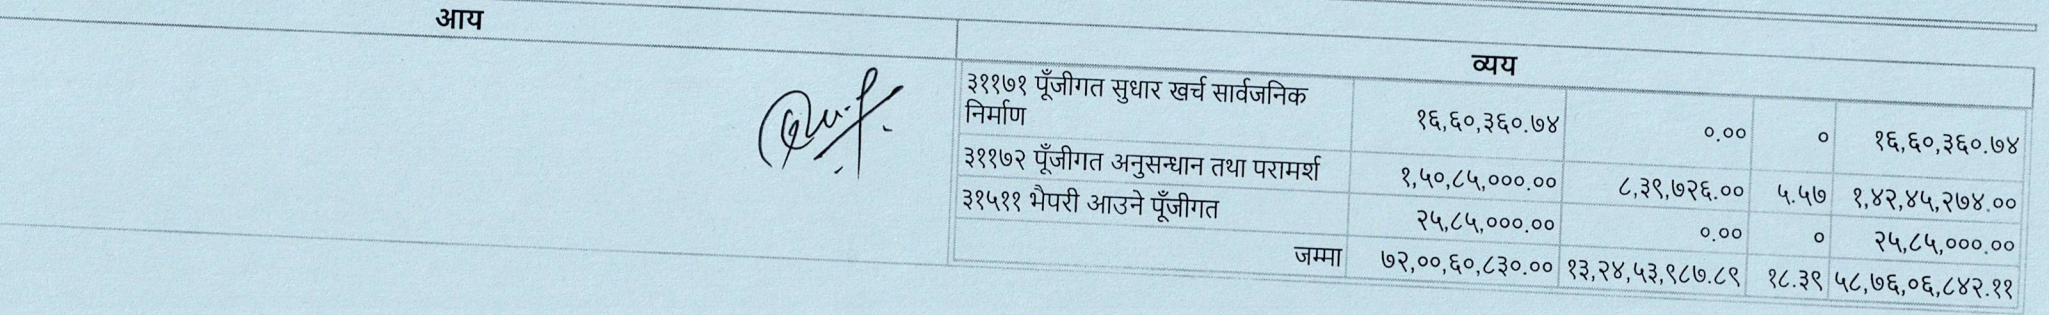 आय
व्यय
३११७१ पूँजीगत सुधार खर्च सार्वजनिक
निर्माण १६,६०,३६०.७४ ०.०० ० १६,६०,३६०.७४
३११७२ पूँजीगत अनुसन्धान तथा परामर्श १,५०,८५,०००.०० ८,३९,७२६.०० ५.५७ १,४२,४५,२७४.००
३१५११ भैपरी आउने पूँजीगत २५,८५,०००.०० ०.०० ० २५,८५,०००.००
जम्मा ७२,००,६०,८३०.०० १३,२४,५३,९८७.८९ १८.३९ ५८,७६,०६,८४२.११